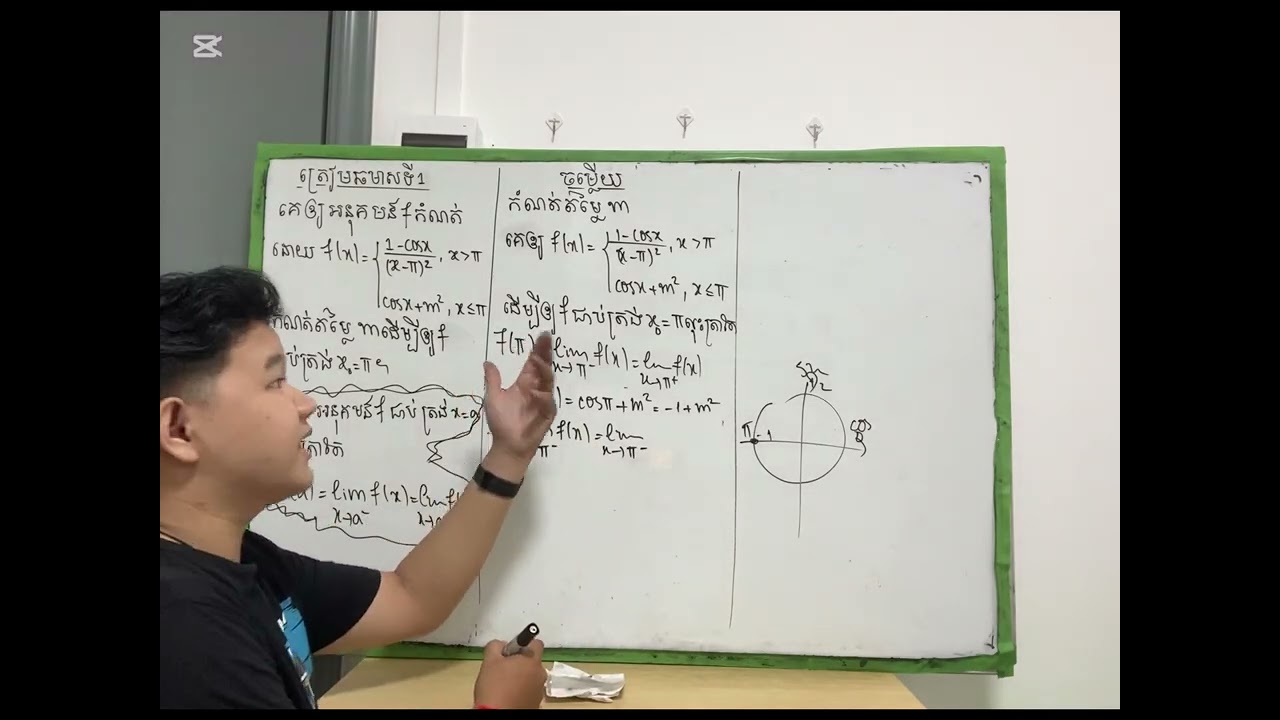 ត្រៀមឆមាសទី1
គេឲ្យអនុគមន៍ f កំណត់
ដោយ f(x)= { 1-cosx/(x-π)², x>π
cosx+m², x≤π
កំណត់តម្លៃ m ដើម្បីឲ្យ f
ជាប់ត្រង់ x₀=π ។
អនុគមន៍ f ជាប់ត្រង់ x=a
= lim f(x) = lim f(
x→a⁻ x→a
ចម្លើយ
កំណត់តម្លៃ m
គេឲ្យ f(x)= { 1-cosx/(x-π)², x>π
cosx+m², x≤π
ដើម្បីឲ្យ f ជាប់ត្រង់ x₀=π លុះត្រាតែ
f(π) lim f(x) = lim f(x)
x→π⁻ x→π⁺
) = cosπ+m² = -1+m²
f(x) = lim
π⁻ x→π⁻
sin
π/2
π -1
cos
0